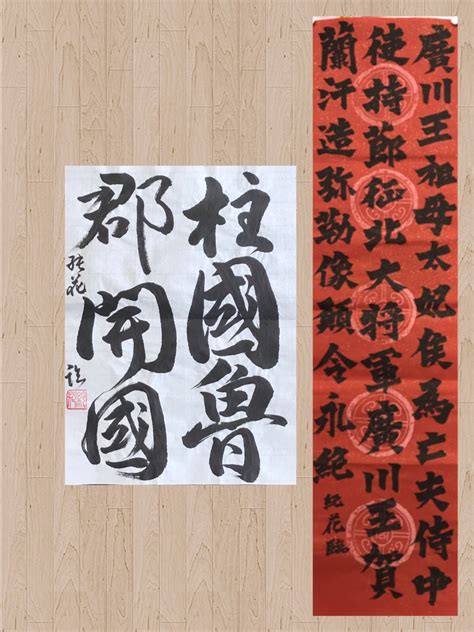 廣川王祖母太妃侯為亡夫侍中
使持節征北大將軍廣川王賀
蘭汗造弥勒像願令永絕
紀花臨
柱國魯
郡開國
花
臨